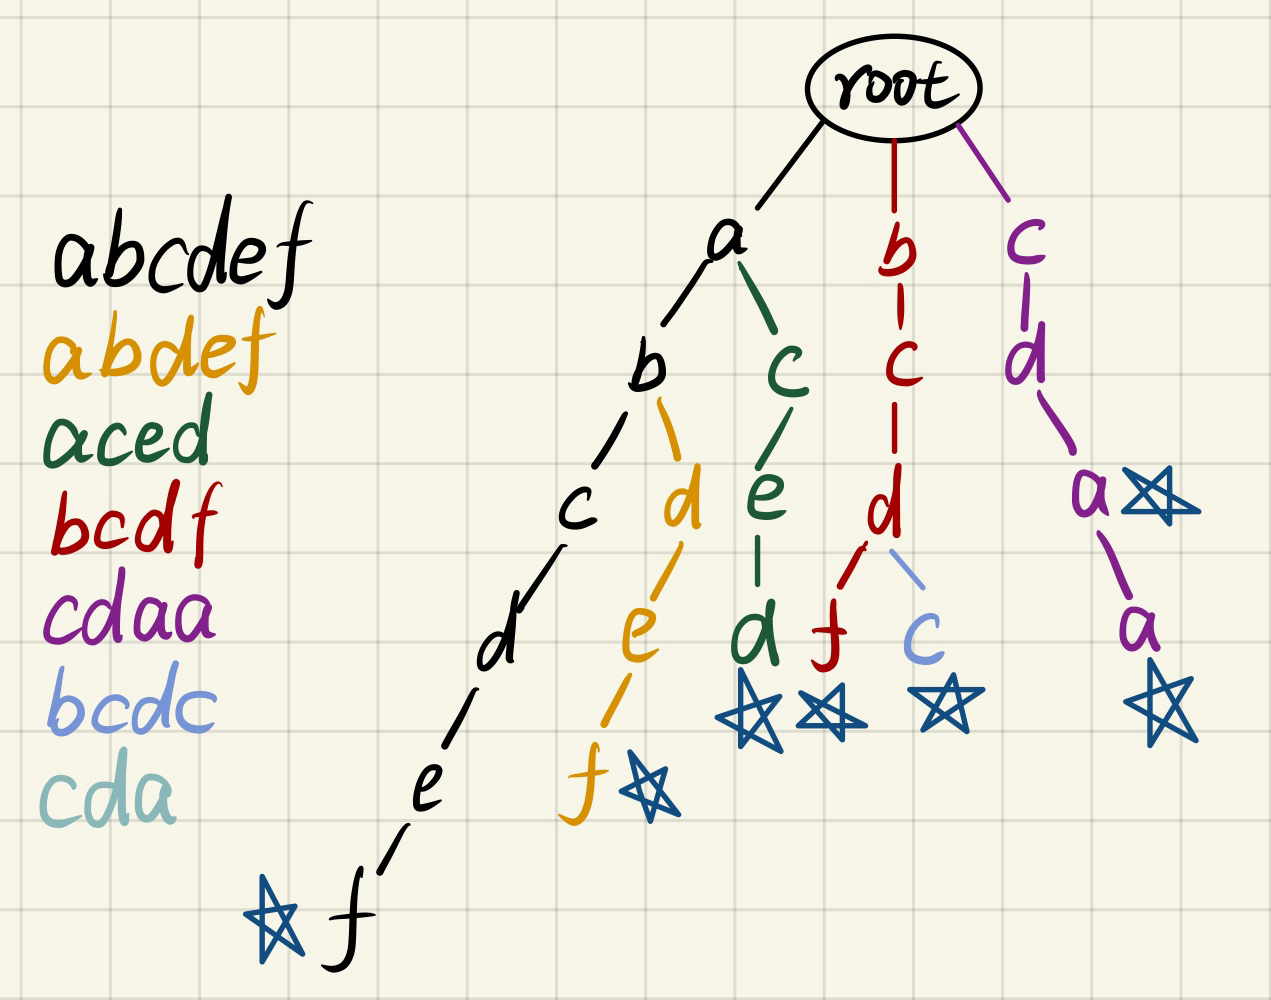 root
abcdef
abdef
aced
bcdf
cdaa
bcdc
cda
a b c
b c c d
c d e d a
d e d f c a
e f
f